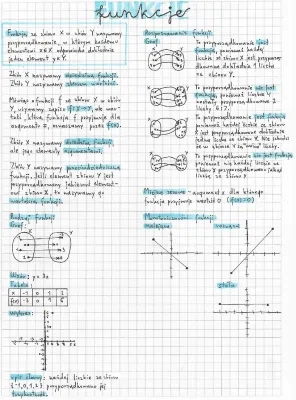 funkcje
Funkcją ze zbioru X w zbiór Y nazywamy
przyporządkowanie, w którym każdemu
elementowi x∈X odpowiada dokładnie
jeden element y∈Y.
Zbiór X nazywamy dziedziną funkcji.
Zbiór Y nazywamy zbiorem wartości.
Mówiąc o funkcji ze zbioru X w zbiór
Y, używamy zapisu f: X→Y, a
którą funkcja f przyjmuje dla
argumentu x, oznaczamy przez f(x).
Zbiór X nazywamy dziedziną funkcji,
ale jej elementy argumentami.
Zbiór Y nazywamy przeciwdziedziną
funkcji. Jeśli element zbioru Y jest
przyporządkowany jakiemuś elemen-
towi zbioru X, to nazywamy go
wartością funkcji.
Rodzaje funkcji
Graf:
X Y
Wzór: y = 3x
Tabela:
x -1 0 1 2
f(x) -3 0 3 6
Wykres:
opis słowny: każdej liczbie ze zbioru
{-1,0,1,2} przyporządkowano jej
Rozpoznawanie funkcji
Graf:
To przyporządkowanie jest
funkcją, ponieważ każdej
liczbie ze zbioru X jest przypo-
rządkowana dokładnie 1 liczba
ze zbioru Y.
To przyporządkowanie nie jest
funkcją, ponieważ liczbie
zostały przyporządkowane 2
liczby
To przyporządkowanie jest funkcją
ponieważ każdej liczbie ze zbioru
X jest przyporządkowana dokładnie
jedna liczba ze zbioru Y.
To przyporządkowanie nie jest funkcją
ponieważ nie każdej liczbie ze
zbioru X przyporządkowano jakąś
liczbę ze zbioru Y
Miejsce zerowe - argument x dla którego
funkcja przyjmuje wartość 0 (f(x)=0)
Monotoniczność funkcji:
malejąca rosnąca
stała